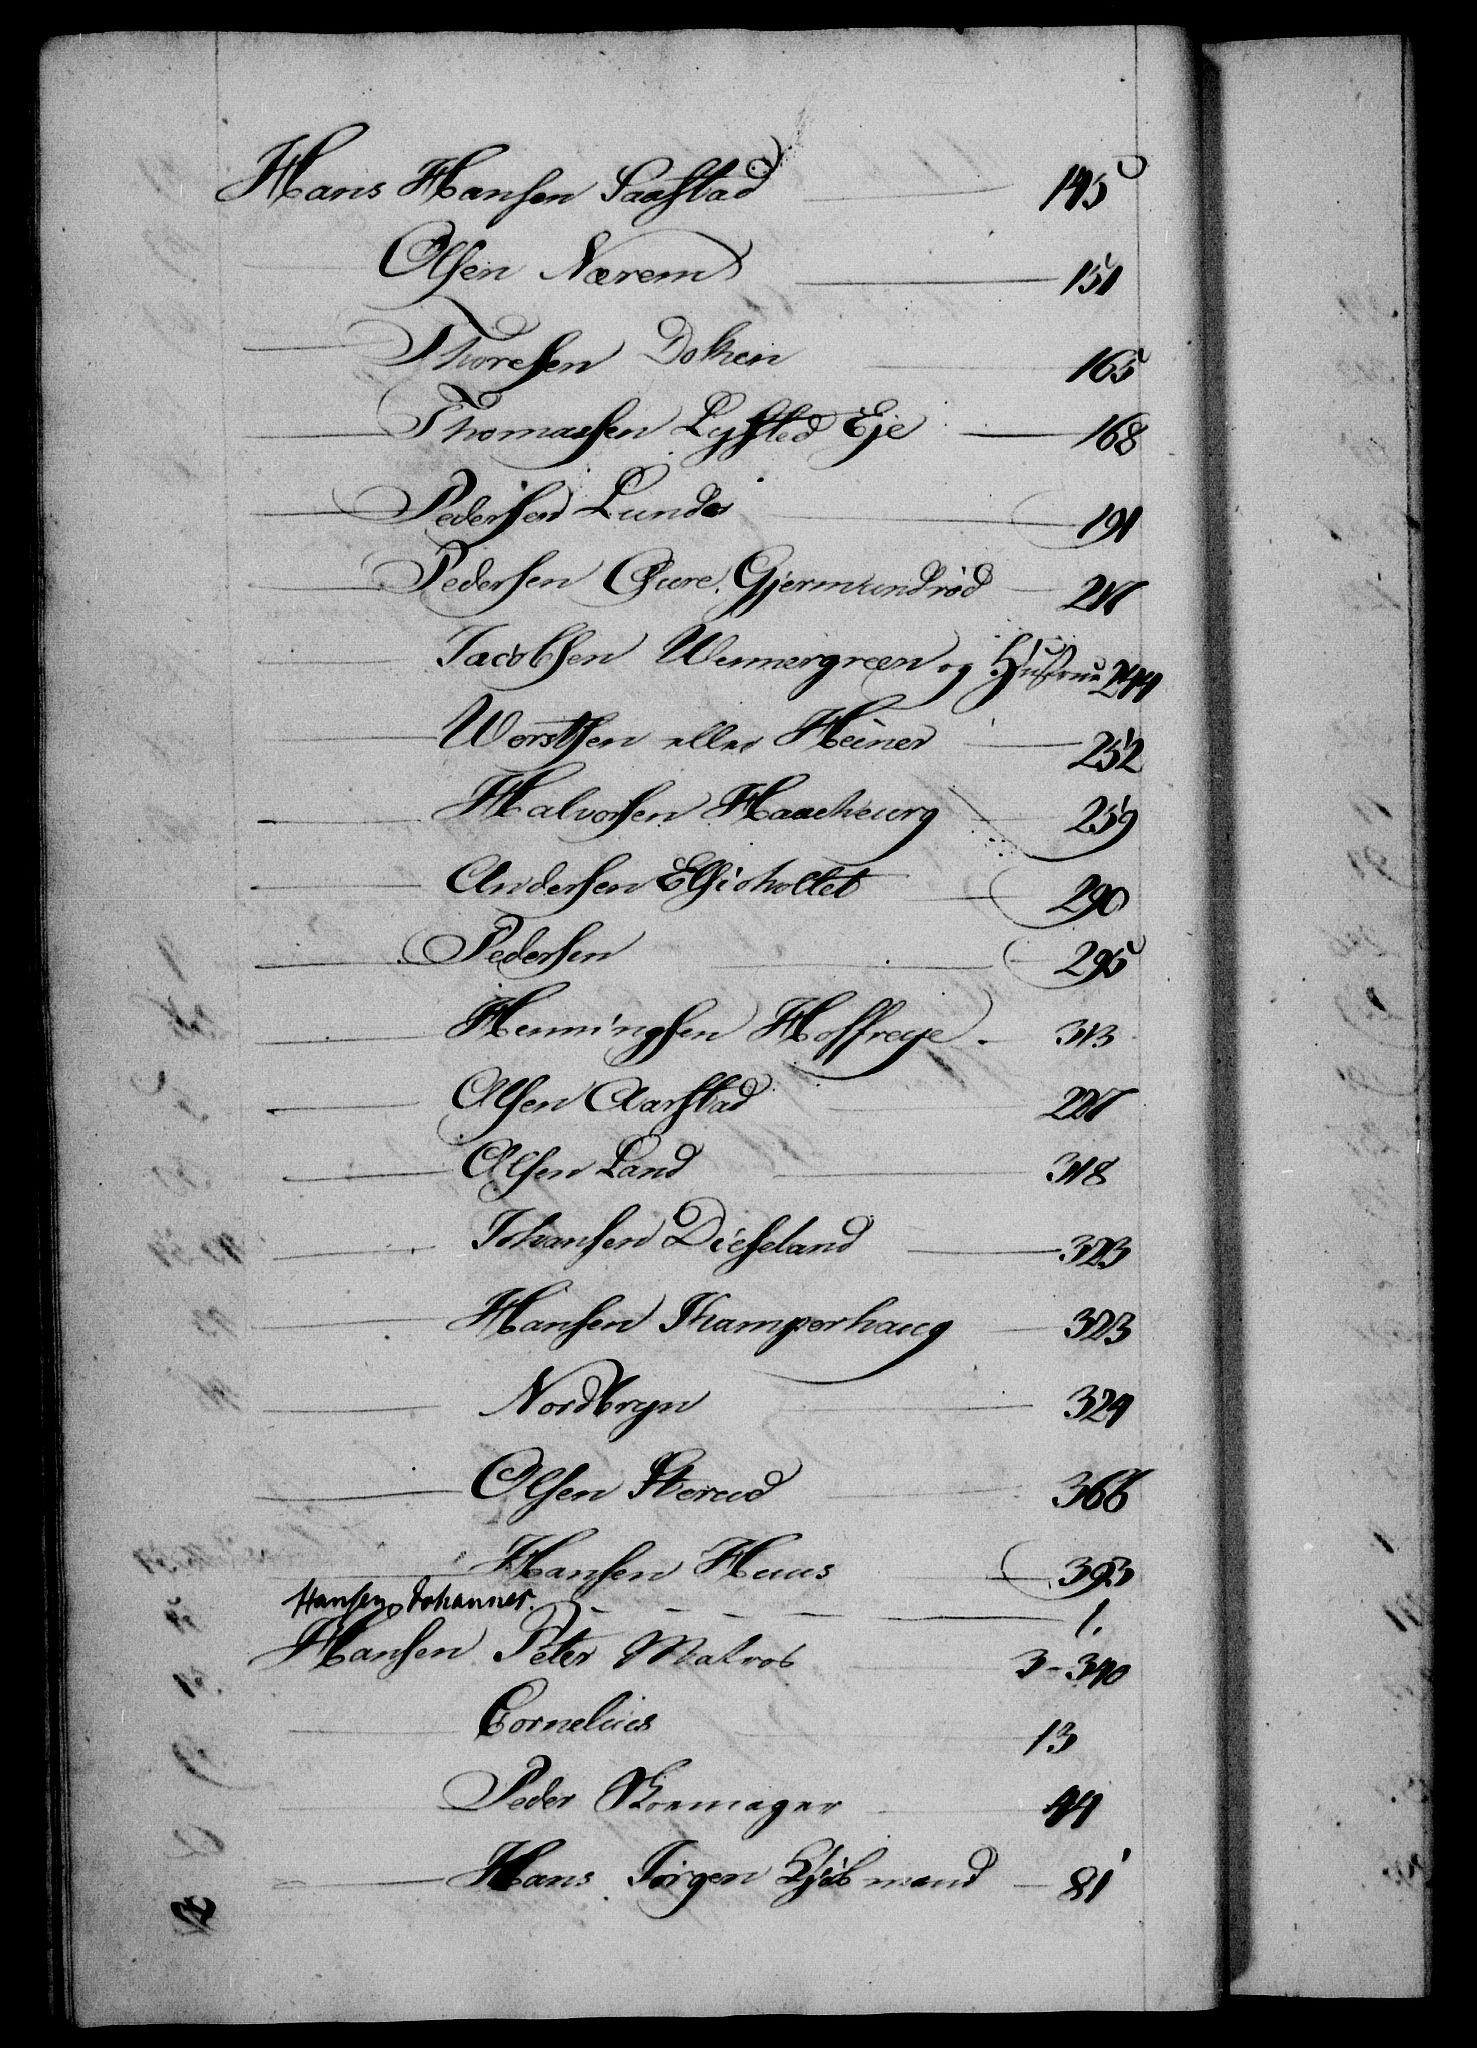 Hans Hansen Saastad 145
— Olsen Nærem 151
— Thoresen Dokken 165
— Thomassen Lysted Eje 168
— Pedersen Lunde 191
— Pedersen Øure Gjermundrød 217
— Jacobsen Wennergreen og Hustrue 244
— Worsthsen eller Heiner 252
— Halvorsen Haacheurg 259
— Andersen Elsioholtet 290
— Pedersen 295
— Henningsen Hoffreije 313
— Olsen Aarstad 227
— Olsen Land 318
— Johansen Dieseland 323
— Hansen Kamperhaug 323
— Nordbryn 329
— Olsen Sterud 366
— Hansen Huus 393
Hansen, Johannes. 1.
Hansen Peter Matros 3-340
— Cornelius 13
— Peder Skoemager 44
— Hans Jørgen Kjøbmand 81